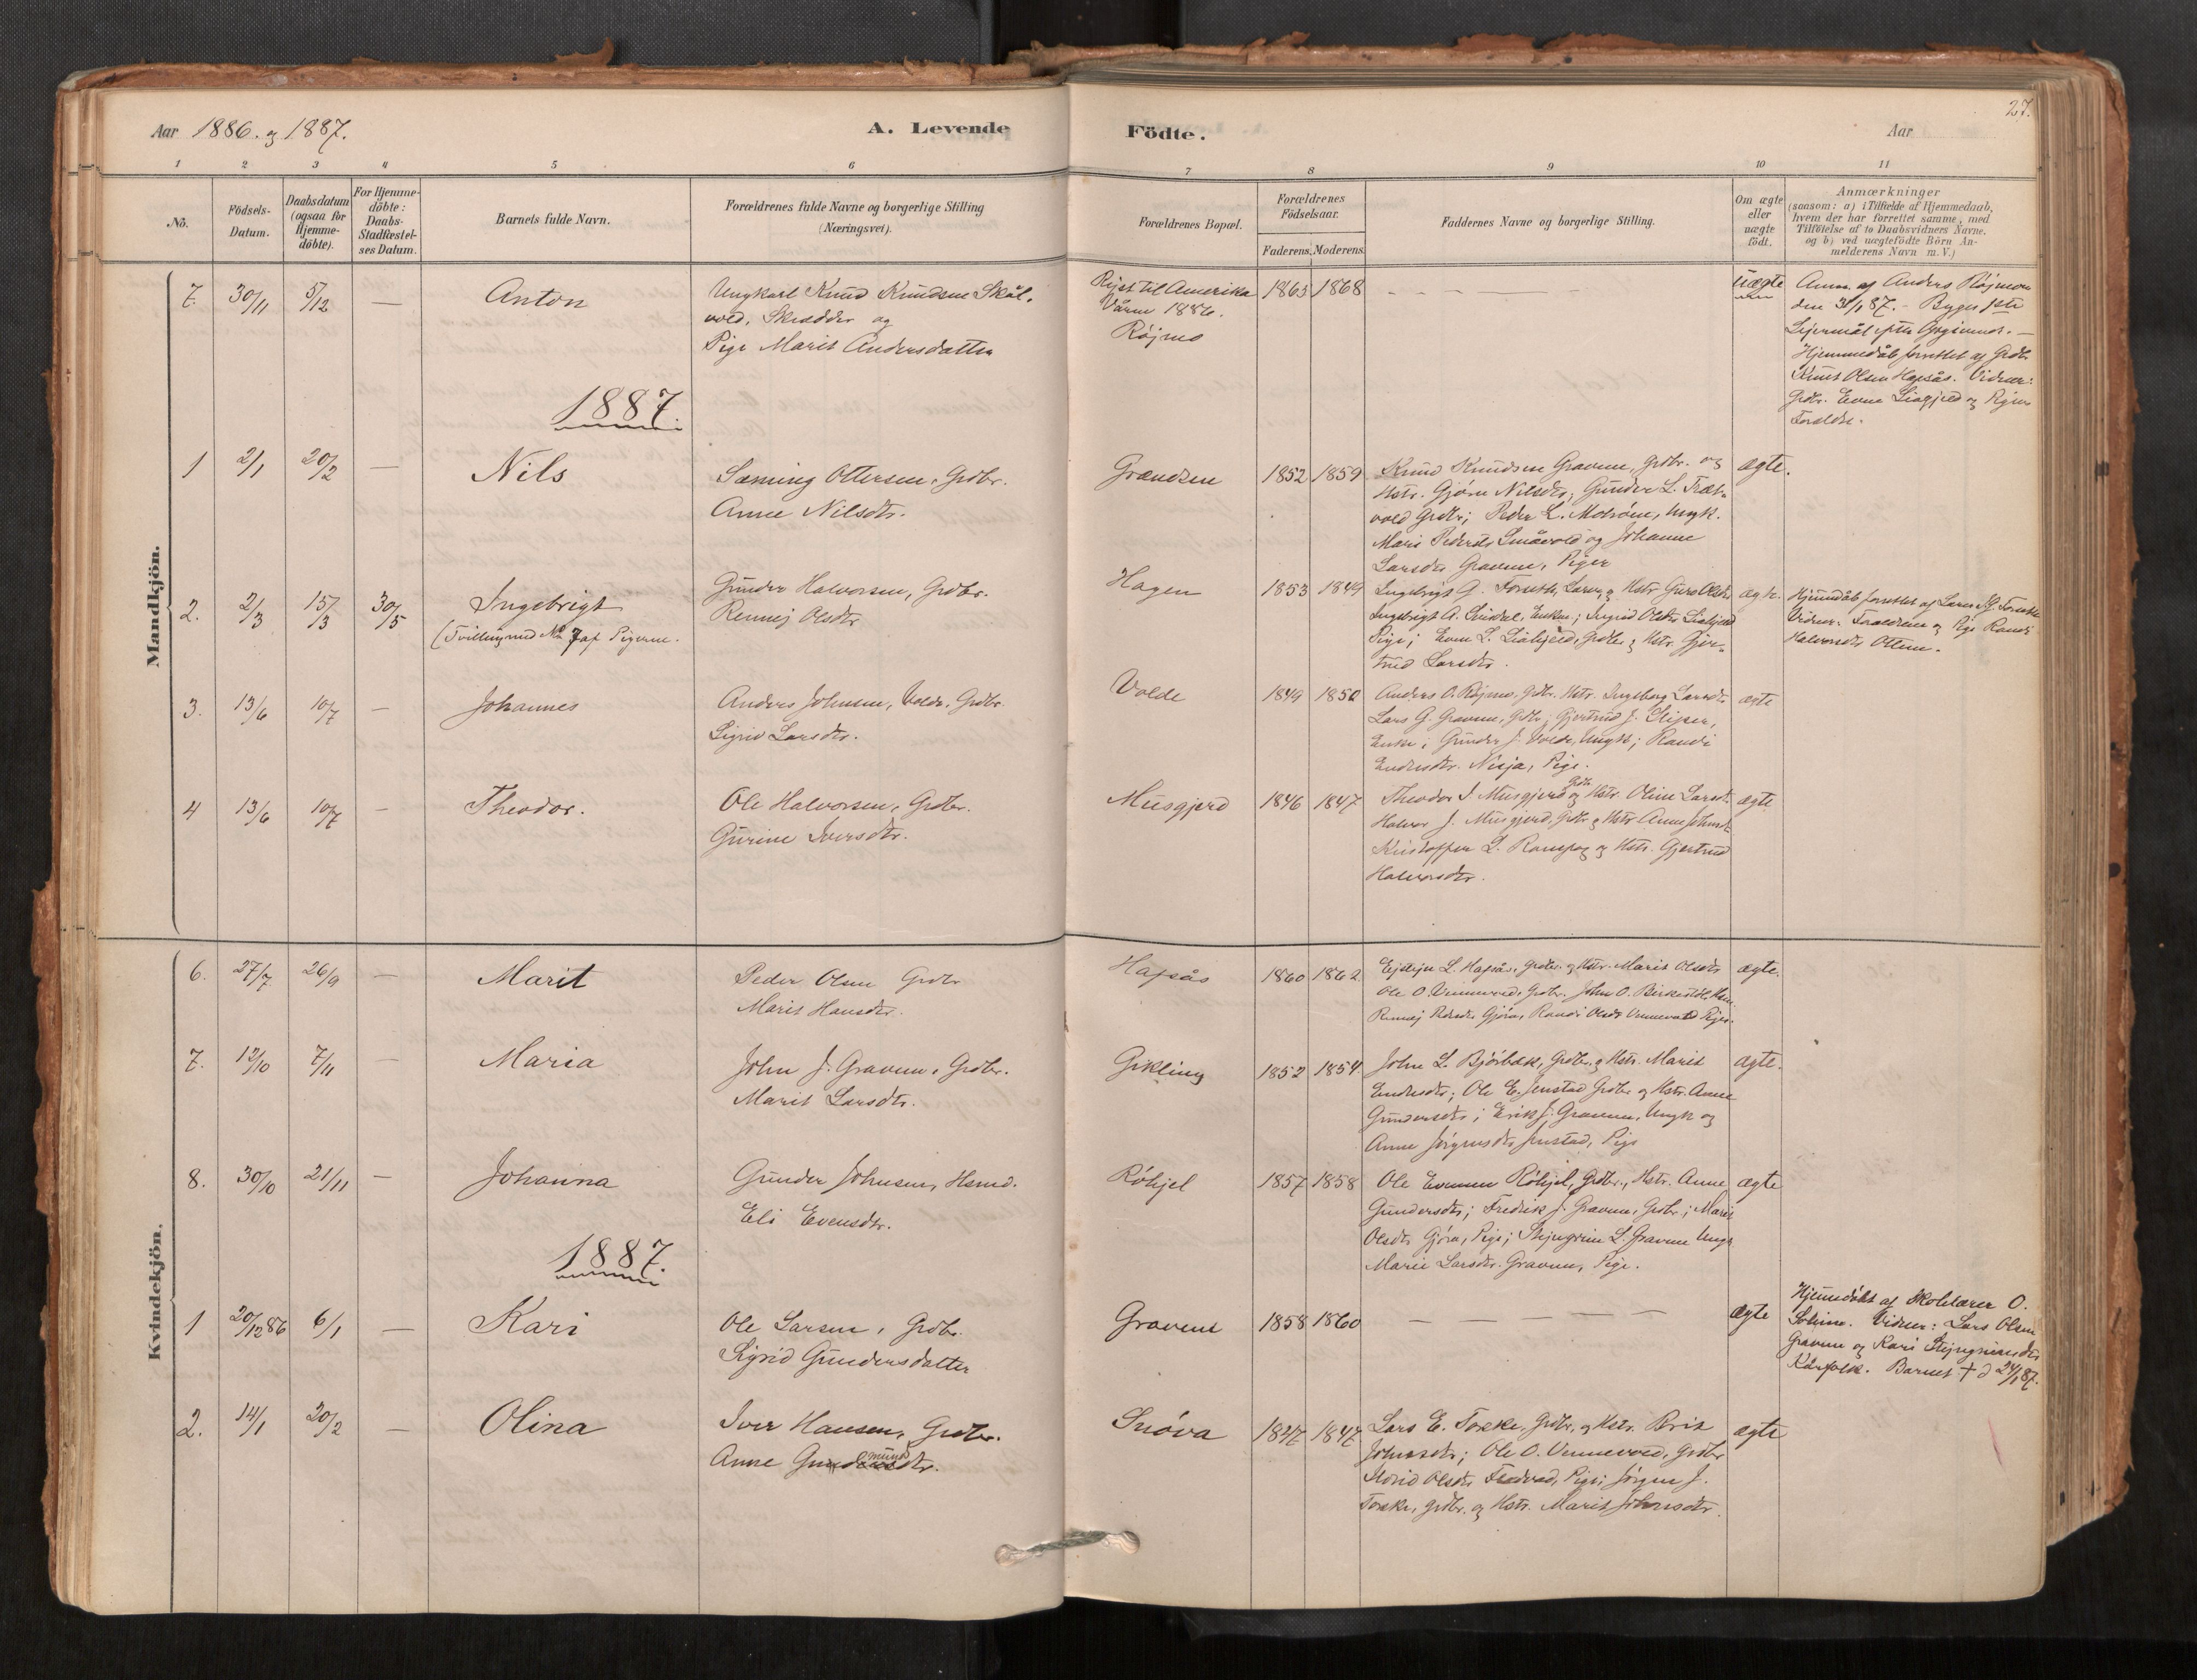 Aar 1886. og 1887.
A. Levende
Födte.
Aar
27.
1 2 3 4 5 6 7 8 9 10 11
No.
Födsels-Datum.
Daabsdatum (ogsaa för Hjemme-döbte).
For Hjemme-döbte: Daabs-Stadfæstel-ses Datum.
Barnets fulde Navn.
Forældrenes fulde Navne og borgerlige Stilling (Næringsvei).
Forældrenes Bopæl.
Forældrenes Födselsaar.
Faderens. Moderens.
Faddernes Navne og borgerlige Stilling.
Om ægte eller uægte födt.
Anmærkninger
(saasom: a) i Tilfælde af Hjemmedaab,
hvem der har forrettet samme, med
Tilföielse af to Daabsvidners Navne.
og b) ved uægtefödte Börn An-
melderens Navn m. V.)
Mandkjön.
7. 30/11 5/12 — Anton
Ungkarl Knud Knudsen Skål-
vold, Skrædder og
Pige Marit Andersdatter
Rejst til Amerika
Våren 1886.
Röjmo
1863 1868
— — — — —
uægte
Anm. af Anders Röjmo
den 31/1 87. —
Lejermål
Hjemmedåb forrettet af Grdbr.
Knut Olsen Hafsås. Vidner:
Grdbr. Even Liagjeld og Pigens
Forældre.
1887.
1 2/1 20/2 — Nils
Sæming Ottersen, Grdbr.
Anne Nilsdtr.
Grændsen
1852 1859
Knud Knudsen Gravem, Grdbr. og
Hstr. Gjöru Nilsdtr; Gunder L. Træt-
vold Grdbr; Peder L. Moheim, Ungk.
Mari Pedersdtr Småvold og Johanne
Larsdtr Gravem, Piger
ægte.
2. 2/3 15/3 30/5 Ingebrigt
(Tvilling med No 7 af Pigerne.
Gunder Halvorsen, Grdbr.
Rennej Olsdtr
Hagen
1853 1849
Ingebrigt G. Forseth, Lærer, og Hstr Guro Olsdtr
Ingebrigt A. Lindal, Enkem; Ingrid Olsdtr Liahjeld
Pige; Even L. Liahjeld, Grdbr og Hstr. Gjer-
trud Larsdtr.
ægte.
Hjemmdåb forrettet af Lærer I. G. Forseth
Vidner: Forældrene og Pige Randi
Halvorsdtr Ottem.
3. 13/6 10/7 — Johannes
Anders Johnsen, Volde, Grdbr.
Sigrid Larsdtr.
Volde
1849 1850
Anders O. Röjmo, Grdbr. Hstr. Ingeborg Larsdtr
Lars G. Gravem, Grdbr; Gjertrud J.
Enke; Gunder J. Volde, Ungk; Randi
Endresdtr. Nisja, Pige.
ægte
4 13/6 10/7 — Theodor.
Ole Halvorsen, Grdbr.
Gurine Iversdtr.
Musgjerd
1846 1847
Theodor I. Musgjerd Grdbr og Hstr. Oline Larsdtr.
Halvor J. Musgjerd, Grdbr og Hstr Anne Johnsdtr
Kristoffer L. og Hstr. Gjertrud
Halvorsdtr.
ægte
Kvindekjön.
6. 27/7 26/9 — Marit
Peder Olsen Grdbr
Marit Hansdtr.
Hafsås
1860 1862
L. Hafsås, Grdbr. og Hstr. Marit Olsdtr
Ole O. Vennevold, Grdbr. John O. Birkestöl, Hsm.
Rennej Pedersdtr Gjöra, Randi Olsdtr Vennevold Piger.
ægte.
7. 12/10 7/11 — Maria
John J. Gravem, Grdbr.
Marit Larsdtr.
Gikling
1852 1854
John L. Björbæk, Grdbr. og Hstr. Marit
Endresdtr; Ole E. Jenstad Grdbr og Hstr. Anne
Gundersdtr; Erik J. Gravem, Ungk og
Anne Jörgensdtr Jenstad, Pige
ægte.
8. 30/10 21/11 — Johanna
Gunder Johnsen, Hsmd.
Eli Evensdtr.
Röhjel
1857 1858
Ole Evensen Röhjel, Grdbr., Hstr. Anne
Gundersdtr; Fredrik J. Gravem, Grdbr; Marit
Olsdtr Gjöra, Pige; Stejngrim L. Gravem Ungk
Marie Larsdtr. Gravem, Pige.
ægte
1887.
1 20/12 86 6/1 — Kari
Ole Larsen, Grdbr.
Sigrid Gundersdatter
Gravem
1858 1860
— — — — —
ægte
Hjemdöbt af Skolelærer O.
Vidner: Lars Olsen
Gravem og Kari Stejngrimsdtr
Kårfolk. Barnet † d 24/1 87.
2. 14/1 20/2 — Olina
Iver Hansen, Grdbr.
Anne Gundersdtr. mund
Snöva
1847 1847
Lars E. Toske, Grdbr, og Hstr. Brit
Johnsdtr; Ole O. Vennevold, Grdbr
Olsdtr Fredvad, Pige; Jörgen J.
Toske, Grdbr. og Hstr. Marit Johnsdtr.
ægte